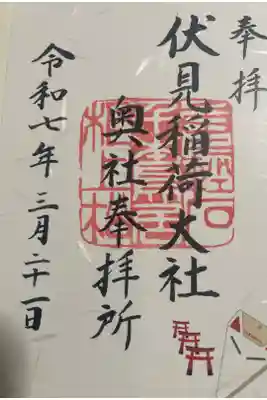 奉拝
伏見稲荷大社
奥社奉拝所
令和七年三月二十一日